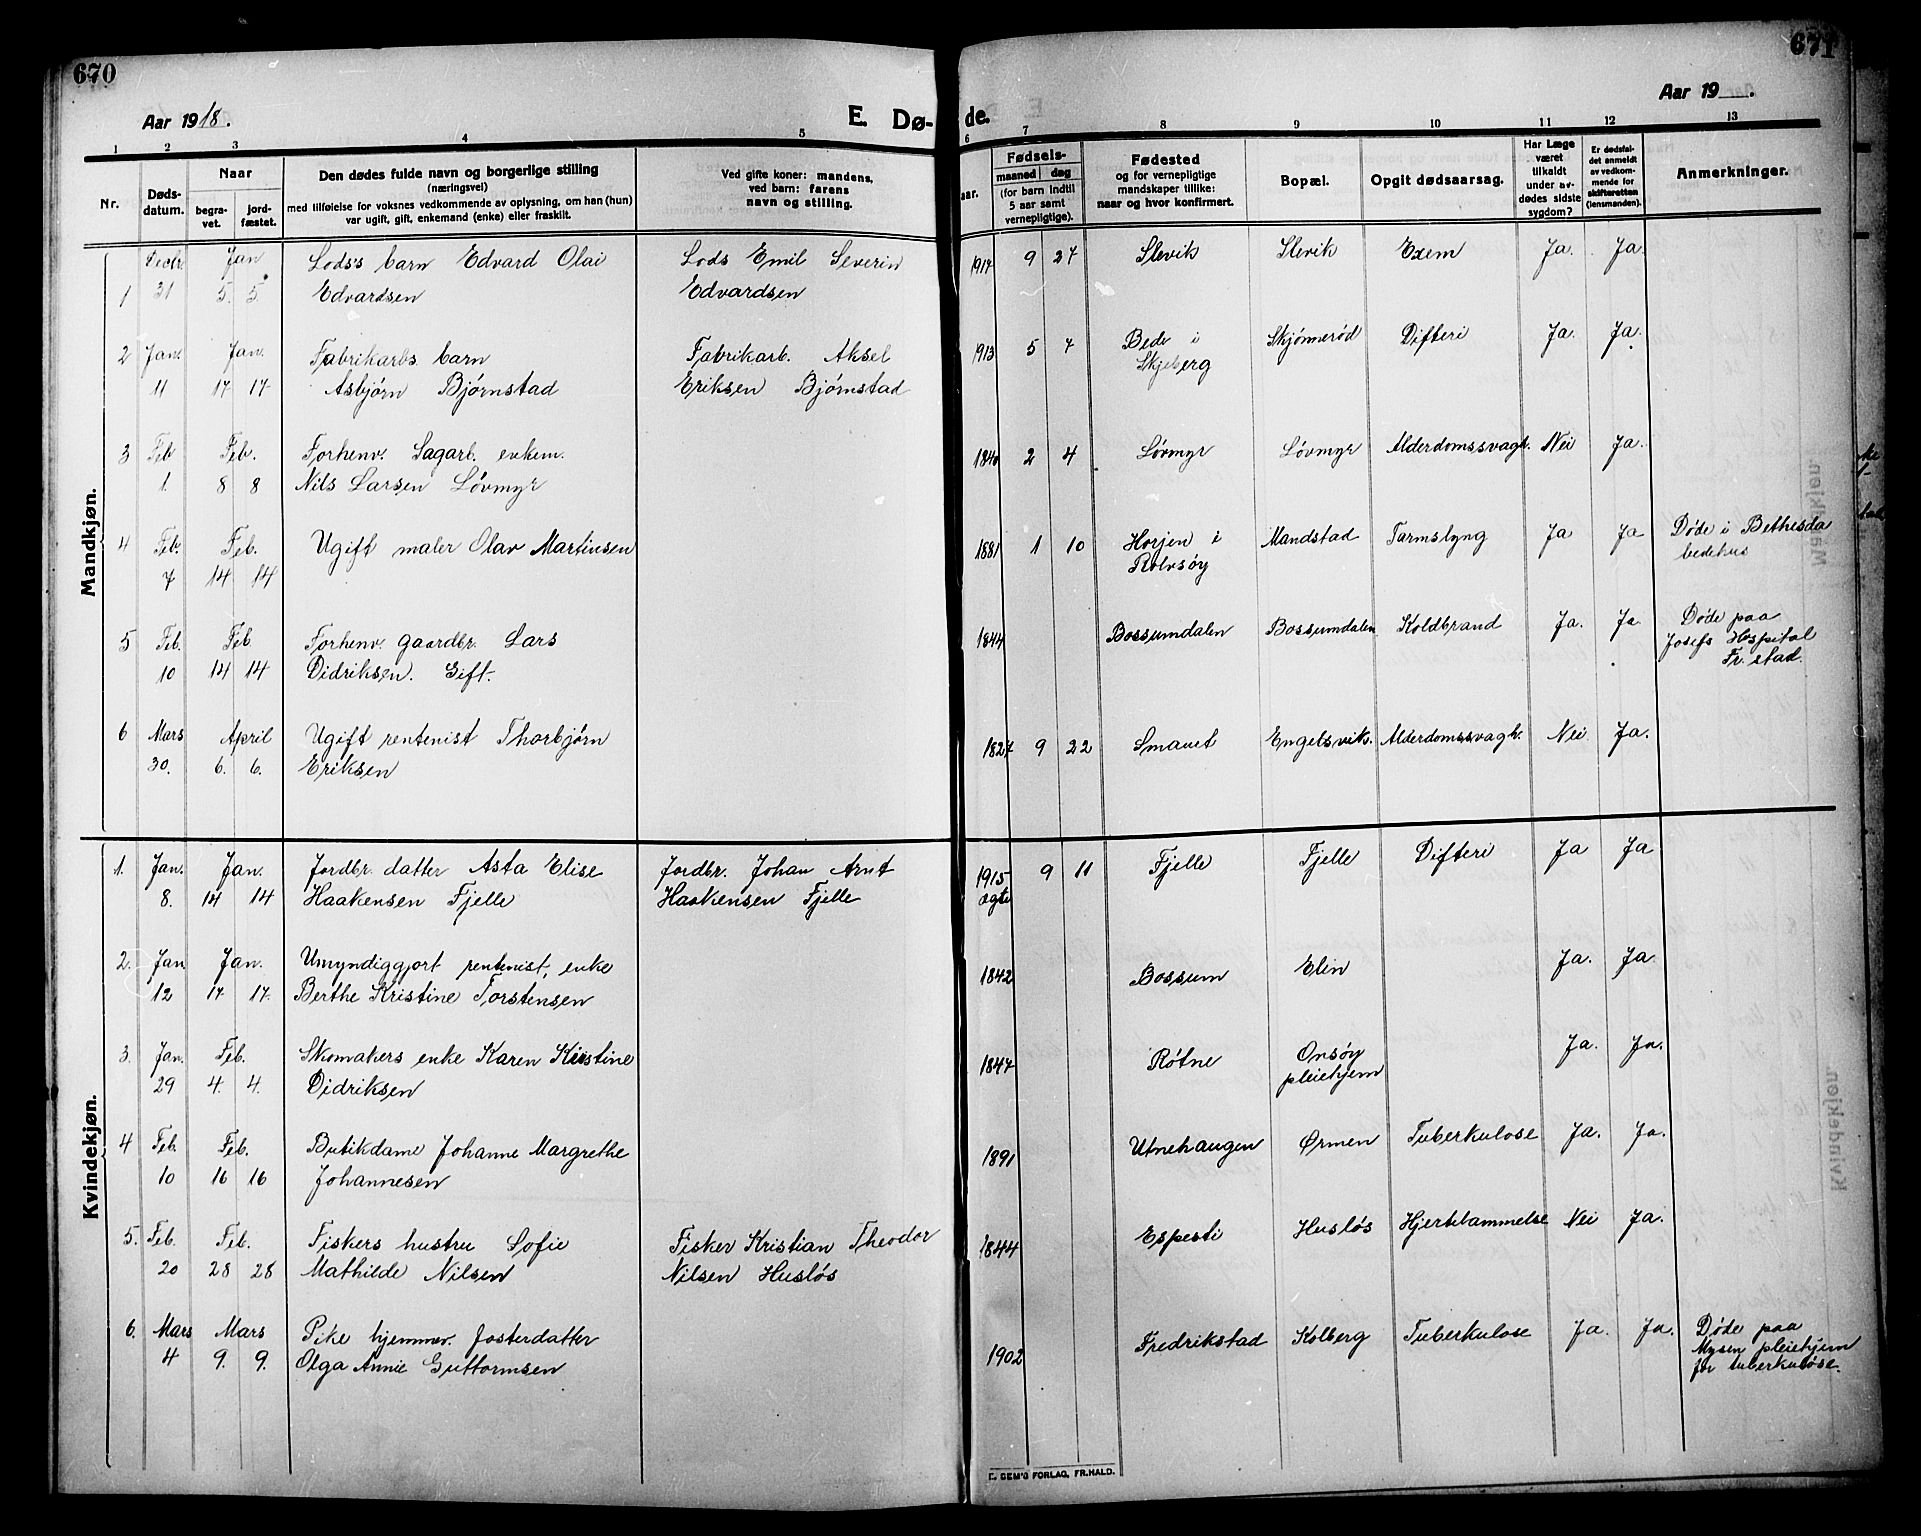 670
671
Aar 1918.
E. Dø-
de.
Aar 19 .
1 2 3 4 5
6 7 8 9 10 11 12 13
Nr.
Døds-
datum.
Naar
begra-
vet.
jord-
fæstet.
Den dødes fulde navn og borgerlige stilling
(næringsvei)
med tilføielse for voksnes vedkommende av oplysning, om han (hun)
var ugift, gift, enkemand (enke) eller fraskilt.
Ved gifte koner: mandens,
ved barn: farens
navn og stilling.
aar.
Fødsels-
maaned dag
(for barn indtil
5 aar samt
vernepligtige).
Fødested
og for vernepligtige
mandskaper tillike:
naar og hvor konfirmert.
Bopæl.
Opgit dødsaarsag.
Har Læge
været
tilkaldt
under av-
dødes sidste
sygdom?
Er dødsfal-
det anmeldt
av vedkom-
mende for
skifteretten
(lensmanden).
Anmerkninger.
Mandkjøn.
Decbr Jan Lods's barn Edvard Olai Lods Emil Severin 1917 9 27 Slevik Slevik Exem Ja. Ja.
1 31 5. 5. Edvardsen Edvardsen
2 Jan. Jan. Fabrikarbs. barn Fabrikarb. Aksel 1913 5 7 Bede i Skjønnerød Difteri Ja. Ja.
11 17 17 Asbjørn Bjørnstad Eriksen Bjørnstad Skjeberg
3 Feb Feb. Forhenv. Sagarb. enkem. 1840 2 4 Løvmyr Løvmyr Alderdomssvagh. Nei Ja.
1. 8 8 Nils Larsen Løvmyr
4 Feb. Feb. Ugift maler Olav Martinsen 1881 1 10 Horjen i Mandstad Tarmslyng Ja Ja Døde i Bethesda
7 14 14 Rolvsøy bedehus
5 Feb. Feb. Forhenv. gaardbr. Lars 1844 Bossumdalen Bossumdalen Koldbrand Ja. Ja Døde paa
10 14 14 Didriksen. Gift. Josefs Hospital
Fr. stad.
6 Mars April Ugift rentenist Thorbjørn 1827 9 22 Smauet Engelsvik. Alderdomssvagh. Nei Ja.
30. 6. 6. Eriksen
Kvindekjøn.
1. Jan. Jan. Jordbr. datter Asta Elise Jordbr. Johan Arnt 1915 9 11 Fjelle Fjelle Difteri Ja Ja
8. 14 14 Haakensen Fjelle Haakensen Fjelle ægte
2. Jan Jan. Umyndiggjort rentenist, enke 1842 Bossum Elin Ja. Ja.
12 17 17. Berthe Kristine Torstensen
3. Jan. Feb. Skomakers enke Karen Kristine 1847 Røtne Onsøy Ja. Ja.
29 4. 4. Didriksen pleiehjem
4 Feb. Feb. Butikdame Johanne Margrethe 1891 Utnehaugen Ørmen Tuberkulose Ja. Ja.
10 16 16 Johannesen
5. Feb. Feb. Fiskers hustru Sofie Fisker Kristian Theodor 1844 Huslös Hjertelammelse Nei Ja.
20 28 28 Mathilde Nilsen Nilsen Huslös
6. Mars Mars Pike hjemmev. fosterdatter 1902 Fredrikstad Kolberg Tuberkulose Ja. Ja. Døde paa
4 9. 9. Olga Annie Guttormsen Mysen pleiehjem
for tuberkuløse.
E. SEM'S FORLAG, FR.HALD.